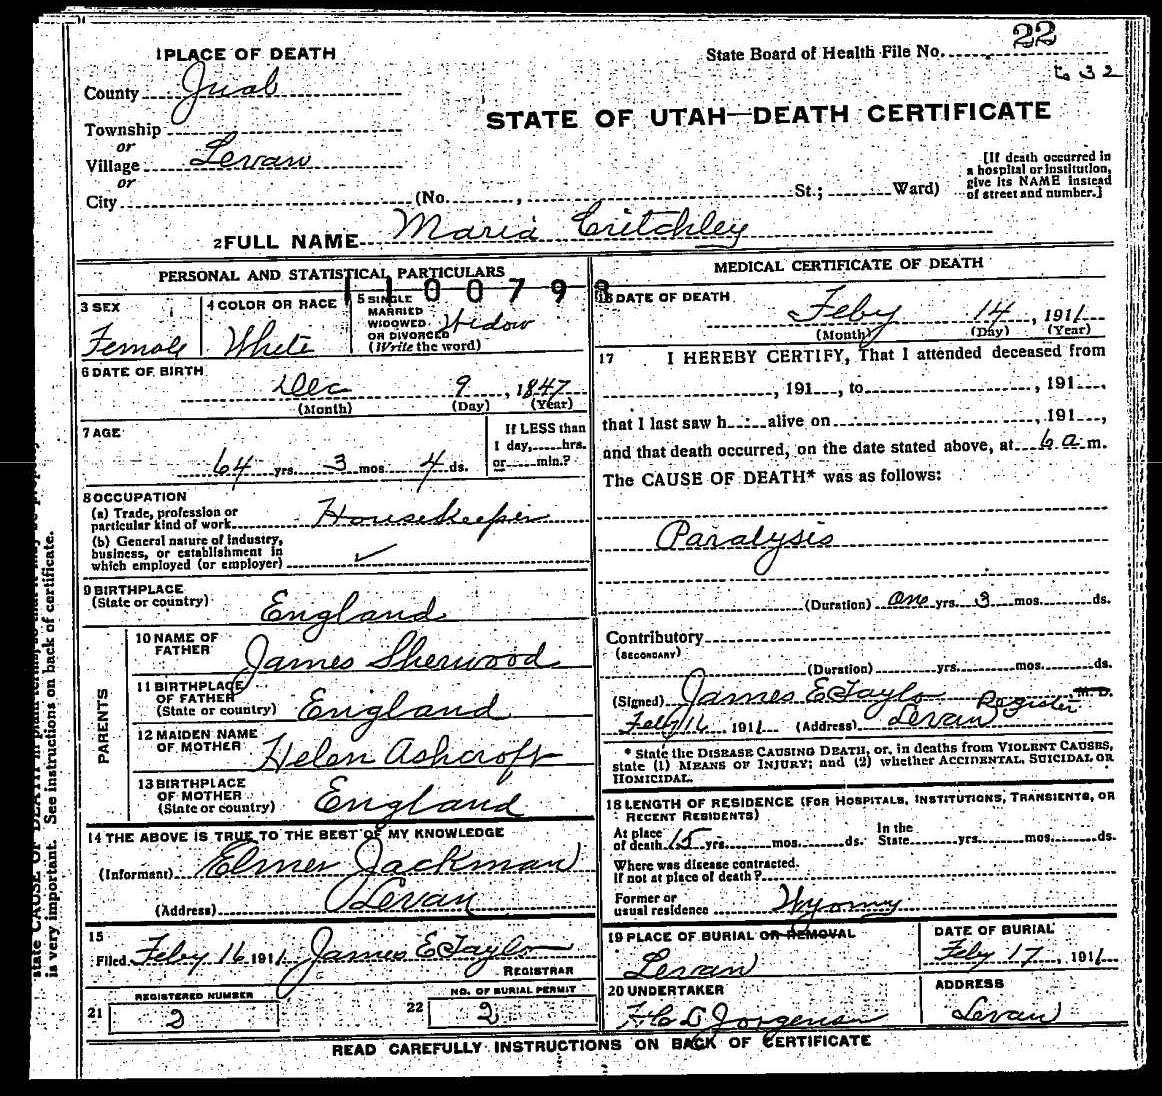 1 PLACE OF DEATH
State Board of Health File No. 22
to 32
County Juab
STATE OF UTAH—DEATH CERTIFICATE
Township
or
Village Levan
or
City (No. , St.; Ward)
[If death occurred in
a hospital or institution,
give its NAME instead
of street and number.]
2 FULL NAME Maria Critchley
PERSONAL AND STATISTICAL PARTICULARS
1100793
3 SEX
Female
4 COLOR OR RACE
White
5 SINGLE
MARRIED
WIDOWED
OR DIVORCED
(Write the word)
Widow
6 DATE OF BIRTH
Dec 9, 1847
(Month) (Day) (Year)
7 AGE
64 yrs. 3 mos. 4 ds.
If LESS than
1 day, hrs.
or min.?
8 OCCUPATION
(a) Trade, profession or
particular kind of work Housekeeper
(b) General nature of industry,
business, or establishment in
which employed (or employer) ✓
9 BIRTHPLACE
(State or country) England
PARENTS
10 NAME OF
FATHER James Sherwood
11 BIRTHPLACE
OF FATHER
(State or country) England
12 MAIDEN NAME
OF MOTHER Helen Ashcroft
13 BIRTHPLACE
OF MOTHER
(State or country) England
14 THE ABOVE IS TRUE TO THE BEST OF MY KNOWLEDGE
(Informant) Elmer Jackman
(Address) Levan
15
Filed Feby 16 1911 James E Taylor
REGISTRAR
21 REGISTERED NUMBER
2
22 NO. OF BURIAL PERMIT
2
MEDICAL CERTIFICATE OF DEATH
16 DATE OF DEATH
Feby 14, 1911
(Month) (Day) (Year)
17 I HEREBY CERTIFY, That I attended deceased from
, 191 , to , 191 ,
that I last saw h alive on , 191 ,
and that death occurred, on the date stated above, at 6 a m.
The CAUSE OF DEATH* was as follows:
Paralysis
(Duration) one yrs. 3 mos. ds.
Contributory
(SECONDARY)
(Duration) yrs. mos. ds.
(Signed) James E Taylor Register M.D.
Feby 16 1911 (Address) Levan
* State the DISEASE CAUSING DEATH, or, in deaths from VIOLENT CAUSES,
state (1) MEANS OF INJURY; and (2) whether ACCIDENTAL, SUICIDAL OR
HOMICIDAL.
18 LENGTH OF RESIDENCE (FOR HOSPITALS, INSTITUTIONS, TRANSIENTS, OR
RECENT RESIDENTS)
At place
of death 15 yrs. mos. ds.
In the
State yrs. mos. ds.
Where was disease contracted.
If not at place of death?
Former or
usual residence Wyoming
19 PLACE OF BURIAL OR REMOVAL
Levan
DATE OF BURIAL
Feby 17, 1911
20 UNDERTAKER
H C D Jorgensen
ADDRESS
Levan
READ CAREFULLY INSTRUCTIONS ON BACK OF CERTIFICATE
state CAUSE OF DEATH in plain terms,
is very important. See instructions on back of certificate.